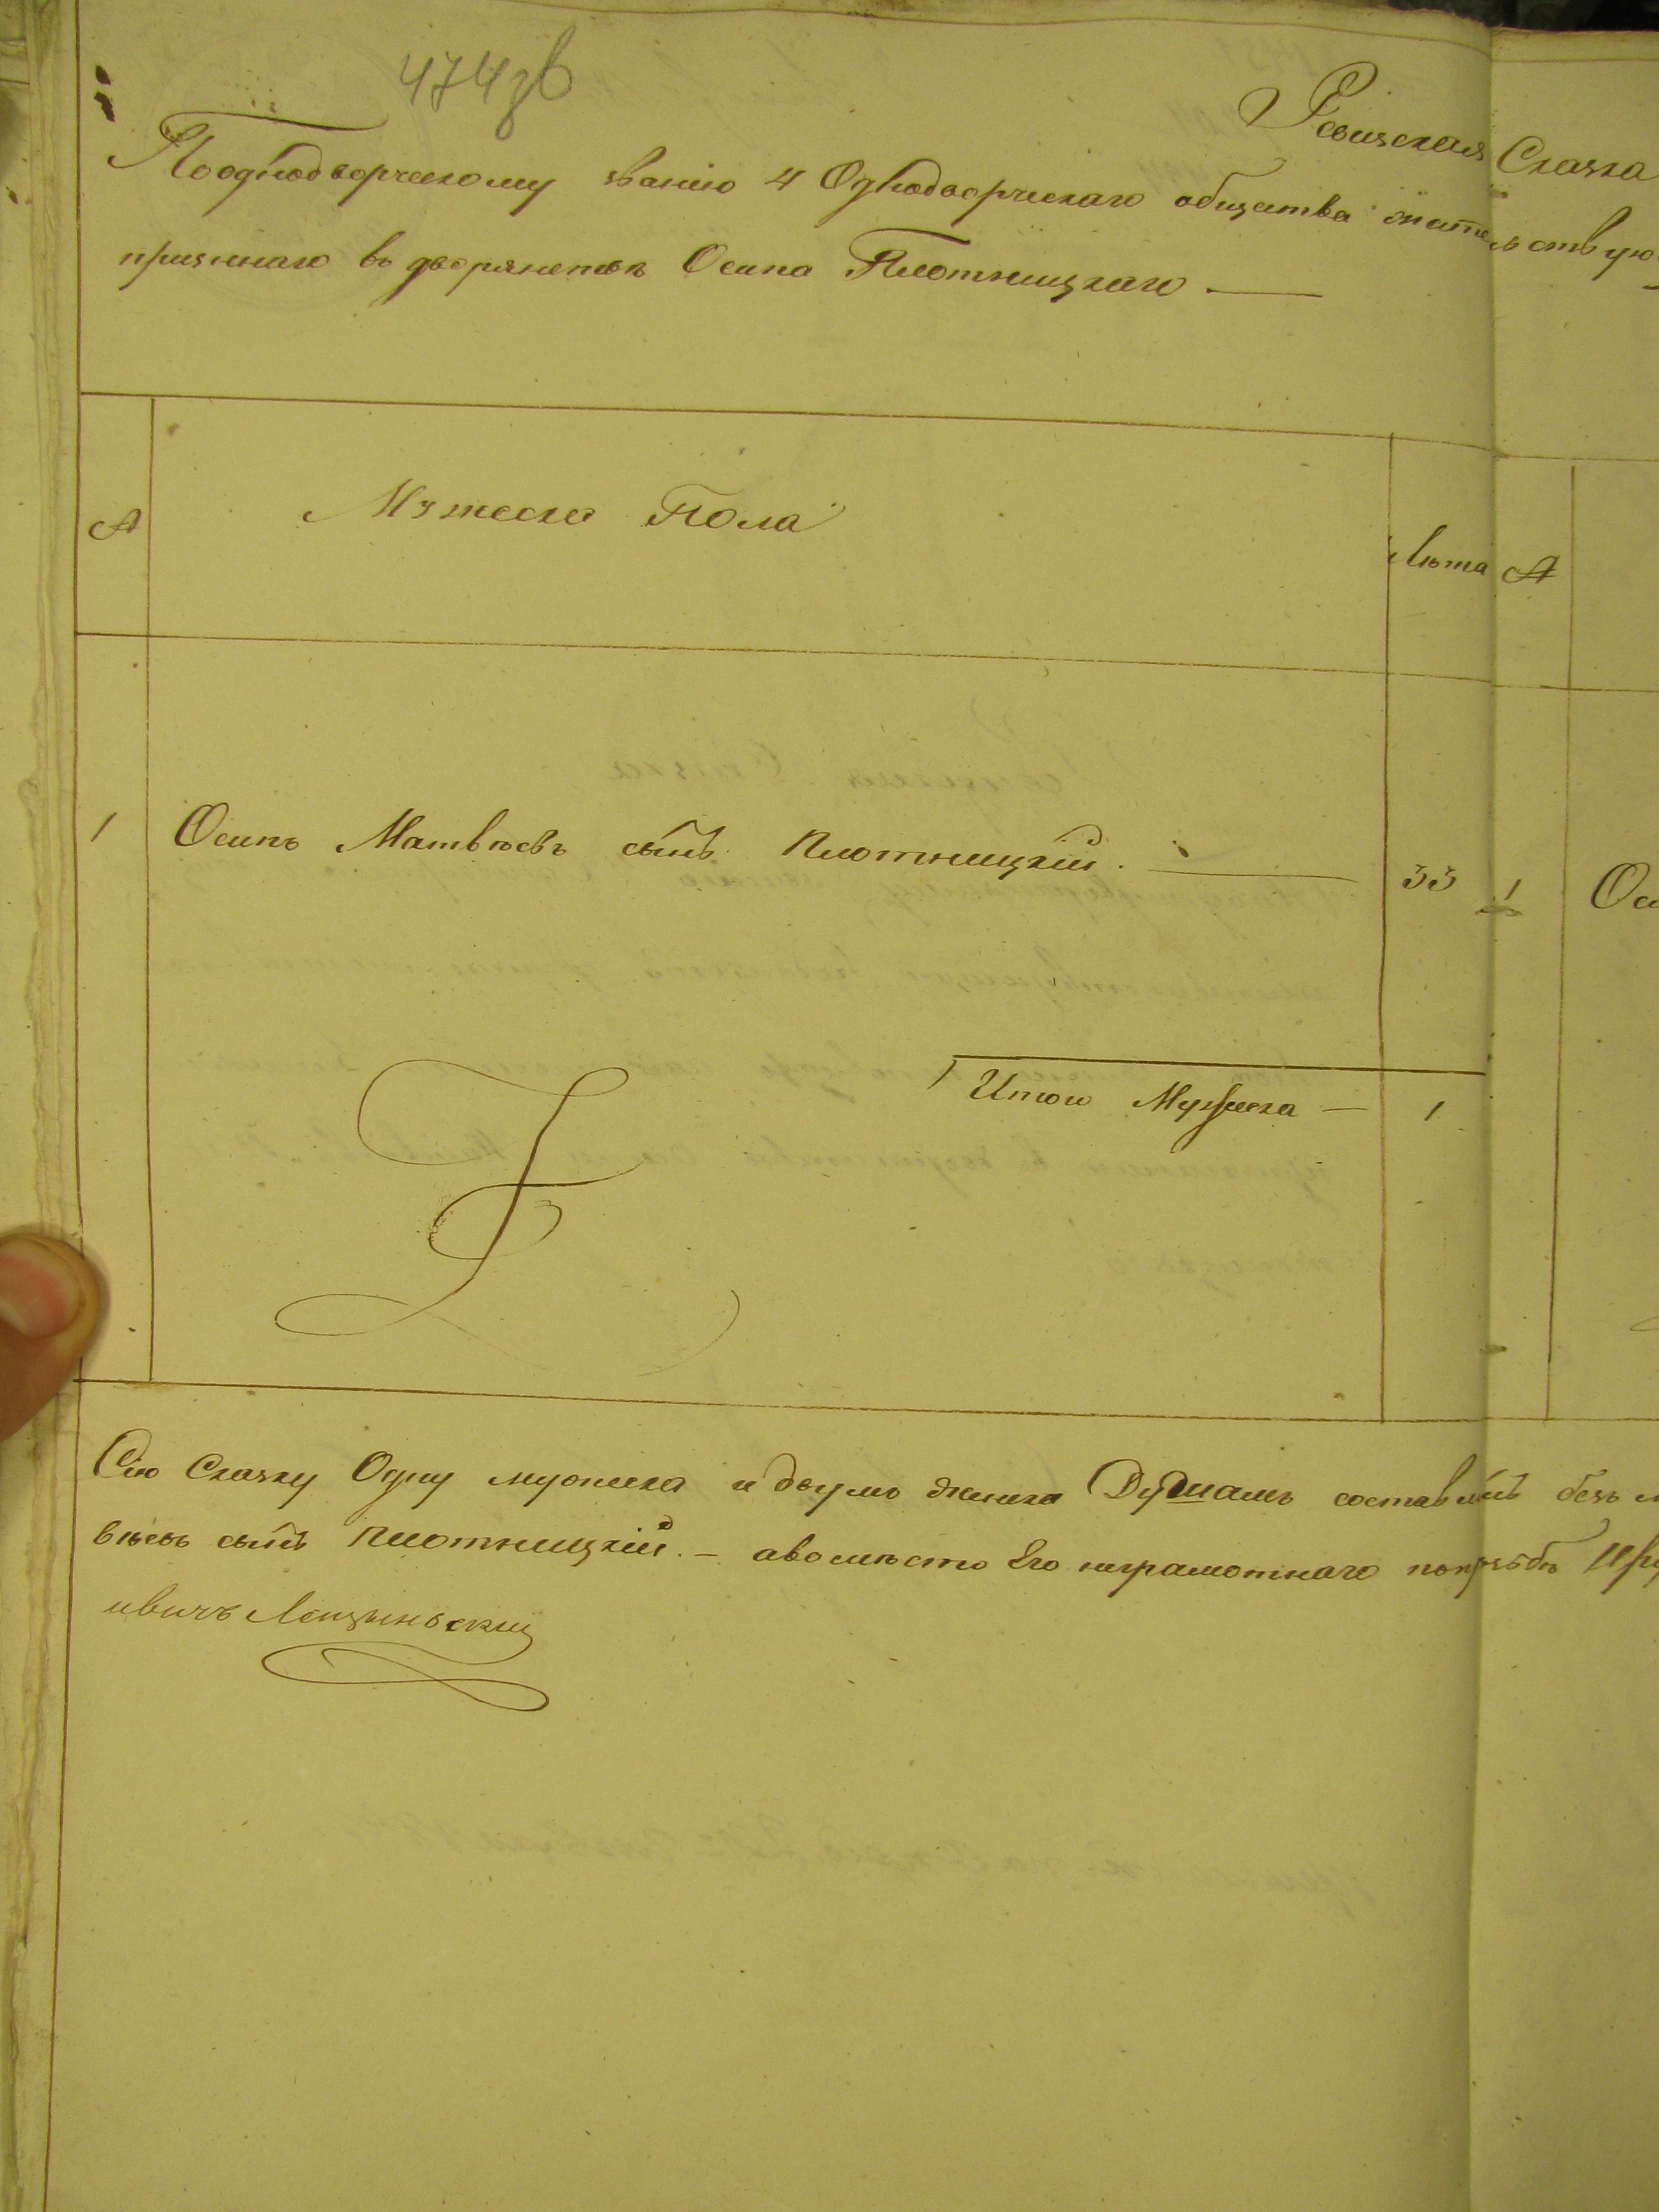 474зв
Ревизская Сказка
По однодворческому званию 4 Однодворческаго общества жительствую
признаннаго въ дворянствѣ Осипа Плотницкаго
№ Мужеска Пола Лѣта №
1 Осипъ Матвѣевъ сынъ Плотницкій. 33 1 Оси
Итого Мужеска — 1
Сію Сказку Одну мужеска и двумъ женска Душамъ составилъ безъ
вѣевъ сынъ Плотницкій. – а вомѣсто Его неграмотнаго попрозьбѣ
ивичъ Лещыньский